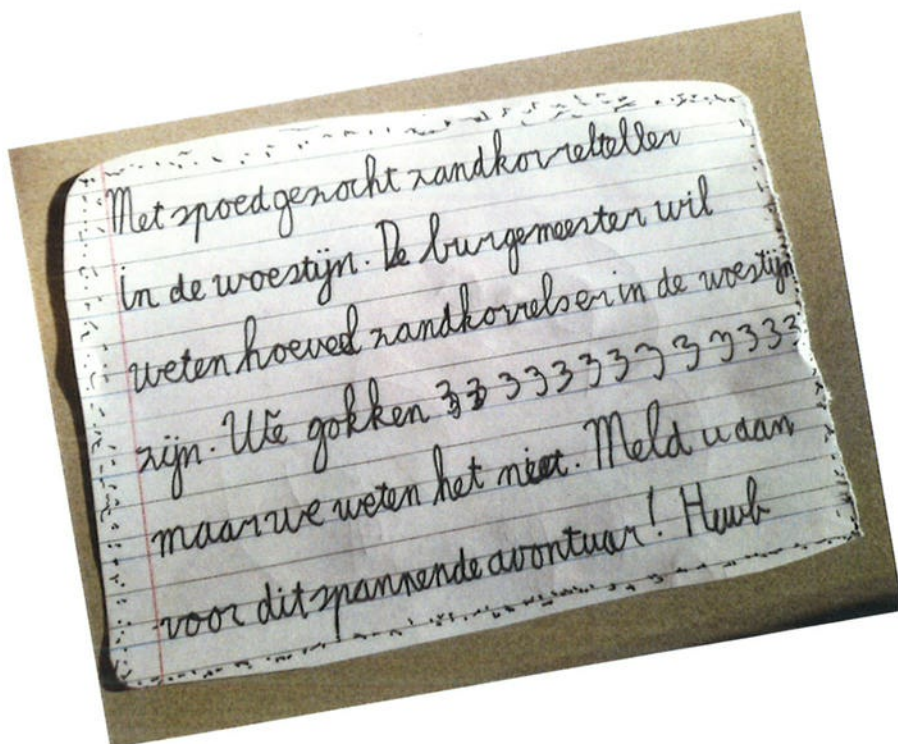 Met spoed gezocht zandkorrelteller
in de woestijn. De burgemeester wil
weten hoeveel zandkorrels er in de woestijn
zijn. We gokken 33333333333333
maar we weten het niet. Meld u aan
voor dit spannende avontuur! Huub